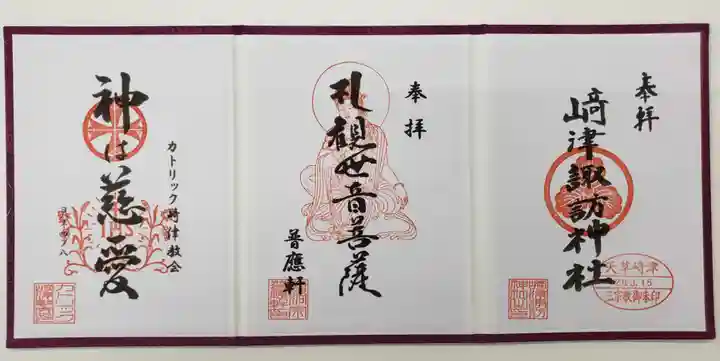 奉拝
﨑津諏訪神社
天草﨑津
三宗教御朱印
奉拝
礼観世音菩薩
普應軒
カトリック﨑津教会
神は慈愛